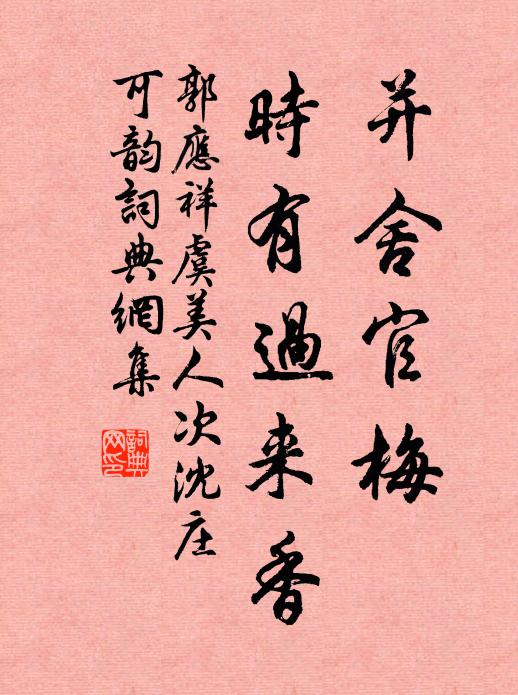 并舍官梅
時有過来香
郭應祥虞美人次沈庄
可韵詞典網集
詞典網印